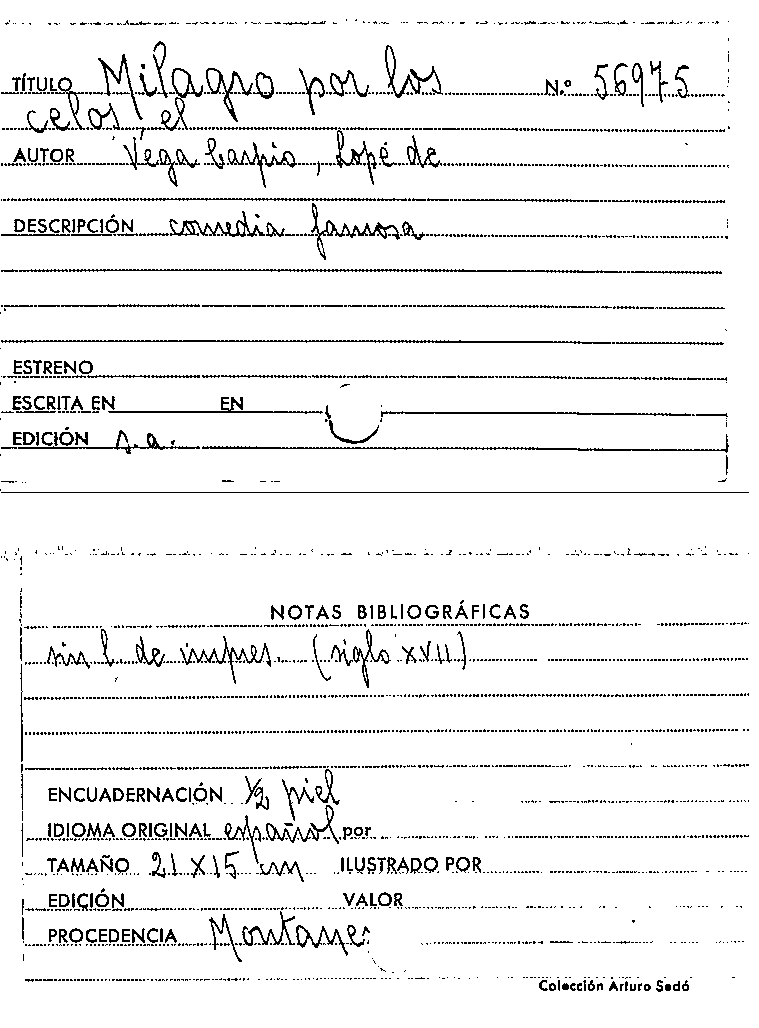 TÍTULO Milagro por los N.º 56975
celos, el
AUTOR Vega Carpio, Lope de
DESCRIPCIÓN comedia famosa
ESTRENO
ESCRITA EN EN
EDICIÓN s.a.
NOTAS BIBLIOGRÁFICAS
sin l. de impres. (siglo XVII)
ENCUADERNACIÓN 1/2 piel
IDIOMA ORIGINAL español por
TAMAÑO 21 X 15 cm ILUSTRADO POR
EDICIÓN VALOR
PROCEDENCIA Montaner
Colección Arturo Sedó